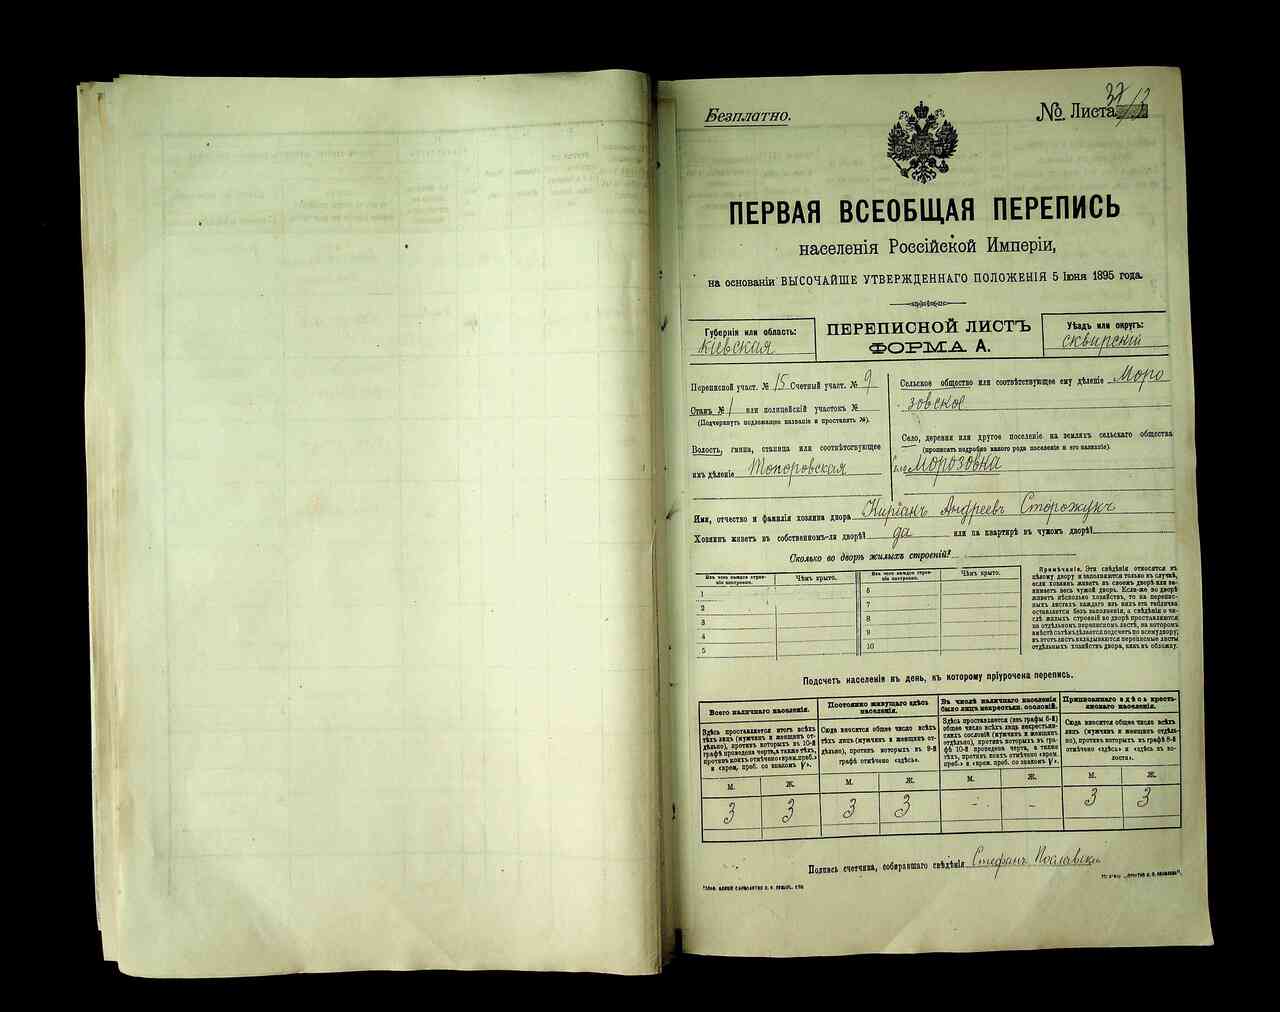 Безплатно.
№ Листа
ПЕРВАЯ ВСЕОБЩАЯ ПЕРЕПИСЬ
населенія Россійской Имперіи,
на основаніи ВЫСОЧАЙШЕ УТВЕРЖДЕННАГО ПОЛОЖЕНІЯ 5 Іюня 1895 года.
Губернія или область:
Кіевская
ПЕРЕПИСНОЙ ЛИСТЪ
ФОРМА А.
Уѣздъ или округъ:
Сквирскій
Переписной участ. № 15 Счетный участ. № 9
Станъ № 1 или полицейскій участокъ №
(Подчеркнуть подлежащее названіе и проставить №).
Волость, гмина, станица или соотвѣтствующее
имъ дѣленіе Топоровская
Сельское общество или соотвѣтствующее ему дѣленіе Моро
зовское
Село, деревня или другое поселеніе на земляхъ сельскаго общества
(прописать подробно какого рода поселеніе и его названіе).
Морозовка
Имя, отчество и фамилія хозяина двора Киріанъ Андреевъ Сторожукъ
Хозяинъ живетъ въ собственномъ-ли дворѣ? да или на квартирѣ въ чужомъ дворѣ?
Сколько во дворѣ жилыхъ строеній?
Изъ чего каждое строе-
ніе построено.
Чѣмъ крыто.
Изъ чего каждое строе-
ніе построено.
Чѣмъ крыто.
1
2
3
4
5
6
7
8
9
10
Примѣчаніе. Эти свѣдѣнія относятся къ
цѣлому двору и заполняются только въ случаѣ,
если хозяинъ живетъ въ своемъ дворѣ или за-
нимаетъ весь чужой дворъ. Если-же во дворѣ
живетъ нѣсколько хозяйствъ, то на перепис-
ныхъ листахъ каждаго изъ нихъ эта табличка
оставляется безъ заполненія, а свѣдѣнія о чи-
слѣ жилыхъ строеній во дворѣ проставляются
на отдѣльномъ переписномъ листѣ, на которомъ
вмѣстѣ съ тѣмъ дѣлается подсчетъ по всему двору;
въ этотъ листъ вкладываются переписные листы
отдѣльныхъ хозяйствъ двора, какъ въ обложку.
Подсчетъ населенія въ день, къ которому пріурочена перепись.
Всего наличнаго населенія.
Постоянно живущаго здѣсь
населенія.
Въ числѣ наличнаго населенія
было лицъ некрестьян. сословій.
Приписаннаго здѣсь кресть-
янскаго населенія.
Здѣсь проставляется итогъ всѣхъ
тѣхъ лицъ (мужчинъ и женщинъ от-
дѣльно), противъ которыхъ въ 10-й
графѣ проведена черта, а также тѣхъ,
противъ коихъ отмѣчено «врем. преб.»
и «врем. преб. со знакомъ V».
Сюда вносится общее число всѣхъ
тѣхъ лицъ (мужчинъ и женщинъ от-
дѣльно), противъ которыхъ въ 9-й
графѣ отмѣчено «здѣсь».
Здѣсь проставляется (изъ графы 6-й)
общее число всѣхъ лицъ некрестьян-
скихъ сословій (мужчинъ и женщинъ
отдѣльно), противъ которыхъ въ гра-
фѣ 10-й проведена черта, а также
тѣхъ, противъ коихъ отмѣчено «врем.
преб.» и «врем. преб. со знакомъ V».
Сюда вносится общее число всѣхъ
лицъ (мужчинъ и женщинъ отдѣль-
но), противъ которыхъ въ графѣ 8-й
отмѣчено «здѣсь» и «здѣсь въ во-
лости».
М. Ж. М. Ж. М. Ж. М. Ж.
3 3 3 3 - - 3 3
Подпись счетчика, собиравшаго свѣдѣнія Стефанъ